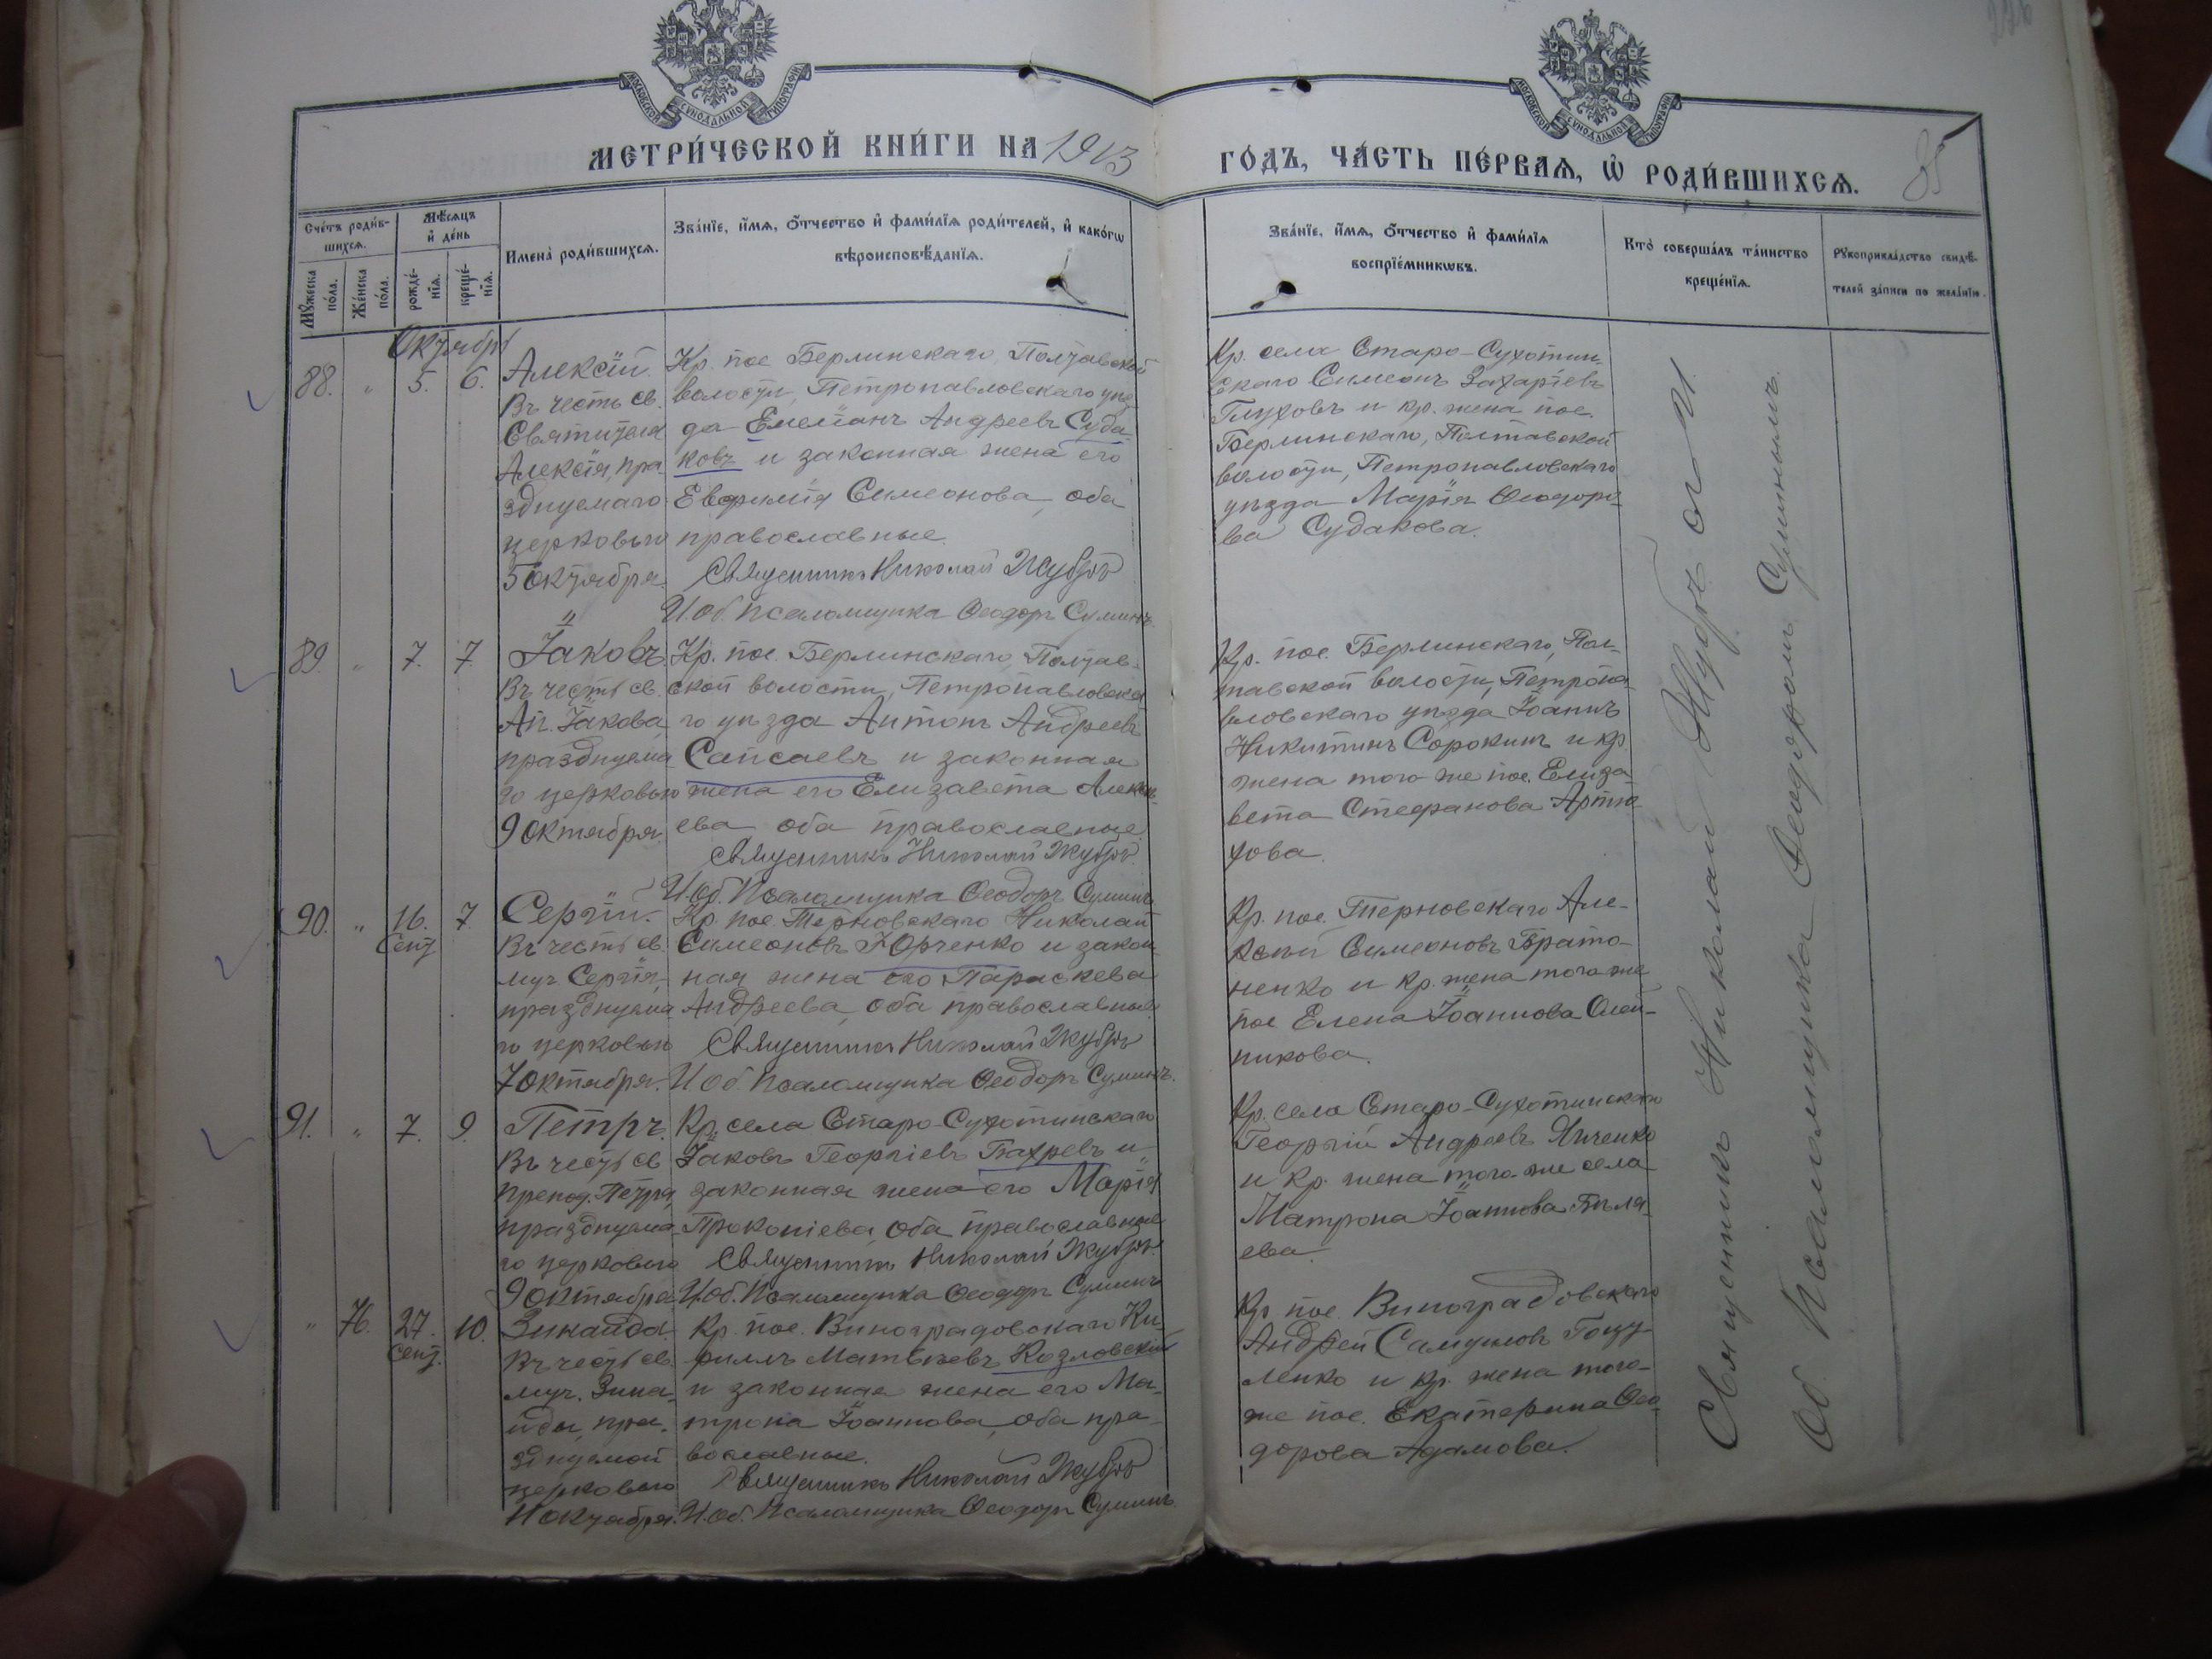 МОСКОВСКОЙ СѴНОДАЛЬНОЙ ТИПОГРАФІИ
МОСКОВСКОЙ СѴНОДАЛЬНОЙ ТИПОГРАФІИ
МЕТРИ́ЧЕСКОЙ КНИ́ГИ НА 1913
ГО́ДЪ, ЧА́СТЬ ПЕ́РВАѦ, Ѡ҆ РОДИ́ВШИХСѦ.
Сче́тъ роди́в-
шихсѧ.
Мꙋ́жеска по́ла.
Же́нска по́ла.
Мѣ́сѧцъ
и҆ де́нь
рожде́-
нїѧ.
креще́-
нїѧ.
И҆мена̀ роди́вшихсѧ.
Зва́нїе, и҆́мѧ, о҆́тчество и҆ фами́лїѧ роди́телей, и҆ како́гѡ
вѣроисповѣ́данїѧ.
Зва́нїе, и҆́мѧ, о҆́тчество и҆ фами́лїѧ
воспрїе́мникѡвъ.
Кто̀ соверша́лъ та́инство
креще́нїѧ.
Рꙋкоприкла́дство свидѣ́-
телей за́писи по жела́нїю.
Октябрь
88. " 5. 6.
Алексій.
Въ честь св.
Святителя
Алексія, пра-
зднуемаго
церковью
5 октября.
Кр. пос. Берлинскаго, Полтавской
волости, Петропавловскаго уѣз-
да Емеліанъ Андреевъ Суда-
ковъ и законная жена его
Евфимія Симеонова, оба
православные.
Священникъ Николай Жубръ
И. об. псаломщика Ѳеодоръ Суминъ.
Кр. села Старо-Сухотин-
скаго Симеонъ Захаріевъ
Глуховъ и кр. жена пос.
Берлинскаго, Полтавской
волости, Петропавловскаго
уѣзда Марія Ѳеодоро-
ва Судакова.
89. " 7. 7.
Іаковъ
Въ честь св.
Ап. Іакова,
празднуема
го церковью
9 октября.
Кр. пос. Берлинскаго, Полтав-
ской волости, Петропавловска
го уѣзда Антонъ Андреевъ
Сапсаевъ и законная
жена его Елизавета Алексѣ-
ева оба православные
Священникъ Николай Жубръ.
И. об. Псаломщика Ѳеодоръ Суминъ
Кр. пос. Берлинскаго, Пол-
тавской волости, Петропа-
вловскаго уѣзда Іоаннъ
Никитинъ Сорокинъ и кр.
жена того-же пос. Елиза-
вета Стефанова Артю-
хова.
90. " 16. Сент. 7
Сергій.
Въ честь св.
муч. Сергія,
празднуема
го церковью
7 октября.
Кр. пос. Терновскаго Николай
Симеоновъ Юрченко и закон-
ная жена его Параскева
Андреева, оба православные
Священникъ Николай Жубръ
И об. Псаломщика Ѳеодоръ Суминъ.
Кр. пос. Терновскаго Але-
ксѣй Симеоновъ Брато-
ненко и кр. жена того же
пос Елена Іоаннова Олей-
никова.
91. " 7. 9.
Петръ.
Въ честь св
препод. Петра,
празднуема-
го церковью
9 октября
Кр. села Старо-Сухотинскаго
Іаковъ Георгіевъ Бахревъ и
законная жена его Марія
Прокопіева, оба православные
Священникъ Николай Жубръ.
И. об. Псаломщика Ѳеодоръ Суминъ
Кр. села Старо-Сухотинскаго
Георгій Андреевъ Яченко
и кр. жена того-же села
Матрона Іоаннова Бѣля-
ева
" 76. 27. Сент. 10.
Зинаида.
Въ честь св.
муч. Зина-
иды, пра-
зднуемой
церковью
11 октября.
Кр. пос. Виноградовскаго Ки-
риллъ Матвѣевъ Козловскій
и законная жена его Ма-
трона Іоаннова, оба пра-
вославные.
Священникъ Николай Жубръ
И. об. Псаломщика Ѳеодоръ Суминъ.
Кр. пос. Виноградовскаго
Андрей Самуиловъ Гоцу-
ленко и кр. жена того-
же пос. Екатерина Ѳео-
дорова Адамова.
Священникъ Николай Жубръ съ И.
Об. Псаломщика Ѳеодоромъ Суминымъ.